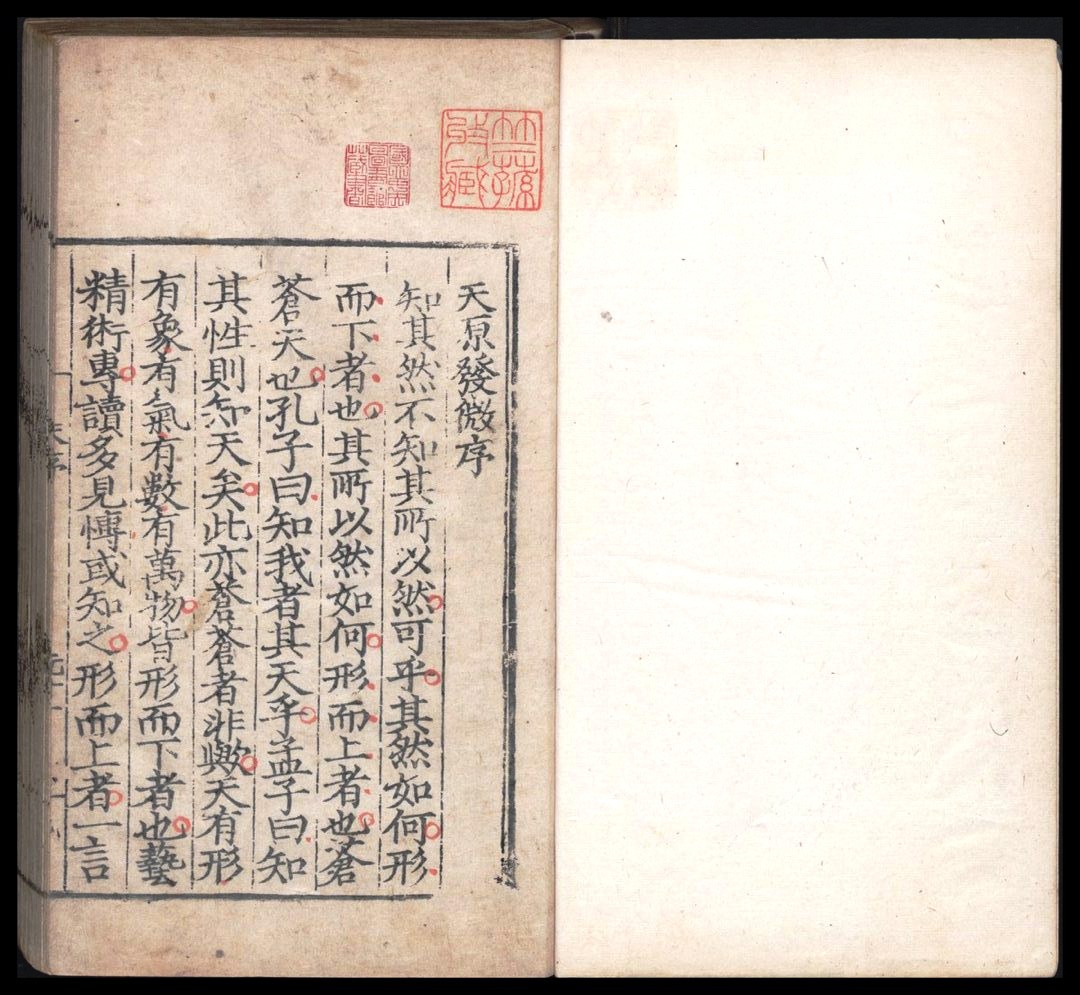 天原發微序
知其然不知其所以然可乎其然如何形
而下者也其所以然如何形而上者也蒼
蒼天也孔子曰知我者其天乎孟子曰知
其性則知天矣此亦蒼蒼者非歟天有形
有象有氣有數有萬物皆形而下者也藝
精術專讀多見慱或知之形而上者一言